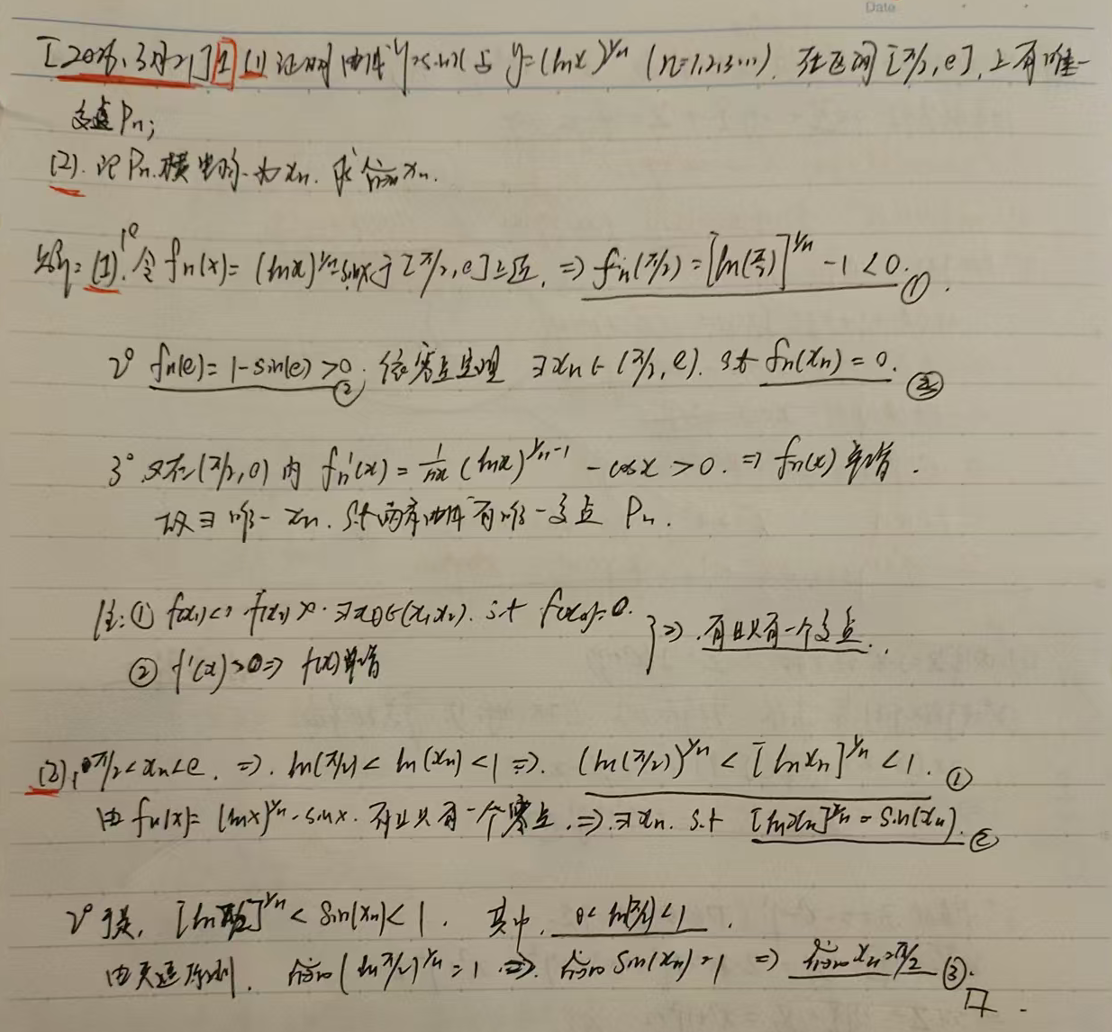 Date
[2026.3月21] 1 (1) 证明 曲线 y=sinx 与 y=(lnx)^{1/n} (n=1,2,3…). 在区间 [π/2, e]. 上有唯一
交点 Pn;
(2). 记 Pn 横坐标为 xn. 求 lim_{n→∞} xn.
(1). 1° 令 fn(x)=(lnx)^{1/n}-sinx 于 [π/2, e] 上 ⇒ fn(π/2)=[ln(π/2)]^{1/n}-1<0. ①.
2° fn(e)=1-sin(e)>0. ② 依零点定理 ∃xn∈(π/2, e). s.t fn(xn)=0. ③
3° 又在(π/2, 0) 内 fn'(x)=1/nx (lnx)^{1/n-1} - cosx>0. ⇒ fn(x) 单增.
故∃唯一 xn. s.t 两条曲线有唯一交点 Pn.
注: ① f(x1)<0 f(x2)>0. ∃x0∈(x1,x2). s.t f(x0)=0. } ⇒. 有且只有一个交点.
② f'(x)>0 ⇒ f(x)单增
(2), 1° π/2<xn<e. ⇒. ln(π/2)<ln(xn)<1 ⇒. (ln(π/2))^{1/n}<[lnxn]^{1/n}<1. ①
由 fn(x)=(lnx)^{1/n}-sinx. 有且只有一个零点. ⇒. ∃xn. s.t [lnxn]^{1/n}=sin(xn). ②
2° 于是, [lnπ/2]^{1/n}<sin(xn)<1. 其中, 0<ln(π/2)<1.
由夹逼准则. lim_{n→∞}(lnπ/2)^{1/n}=1 ⇒. lim_{n→∞} sin(xn)=1 ⇒ lim_{n→∞} xn=π/2 ③.
口.